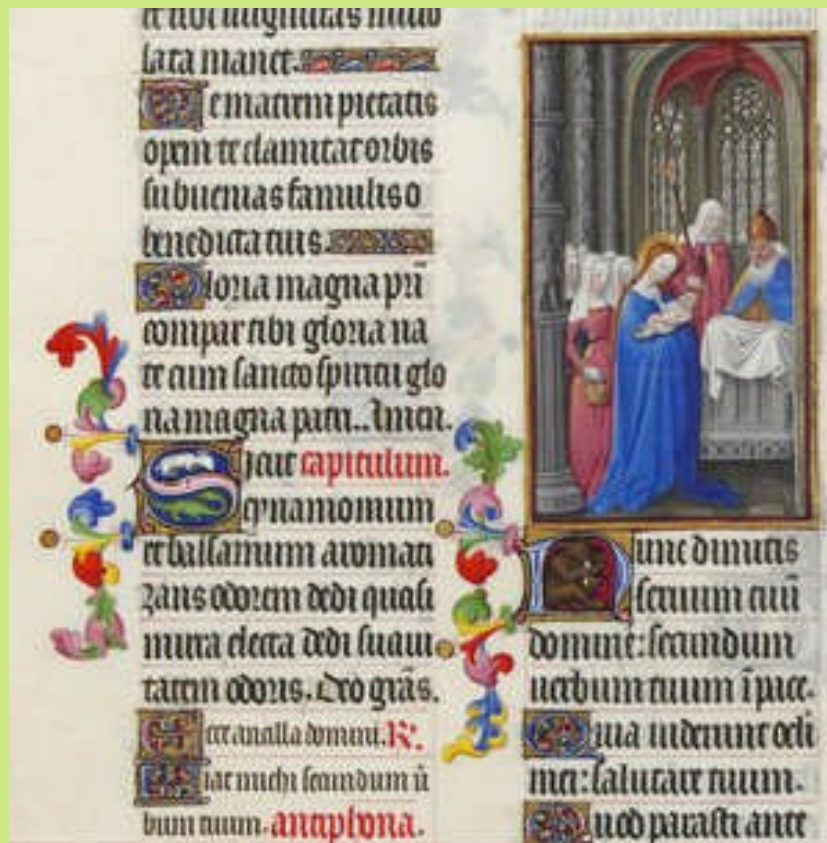 lata manet.
Te matrem pietatis
opem te clamitat orbis
subuenias famulis o
benedicta tuis.
Gloria magna pri̅
compar tibi gloria na
te cum sancto spiritu glo
ria magna patri.. Amen.
Sicut capitulum.
cynamomum
et balsamum aromati
zans odorem dedi quasi
mirra electa dedi suaui
tatem odoris. Deo gr̅as.
Ecce ancilla domini. R.
Fiat michi secundum u̅
bum tuum. antiphona.
Nunc dimitis
seruum tuu̅
domine: secundum
uerbum tuum i̅ pace.
Quia uiderunt ocli
mei: salutare tuum.
Quod parasti ante